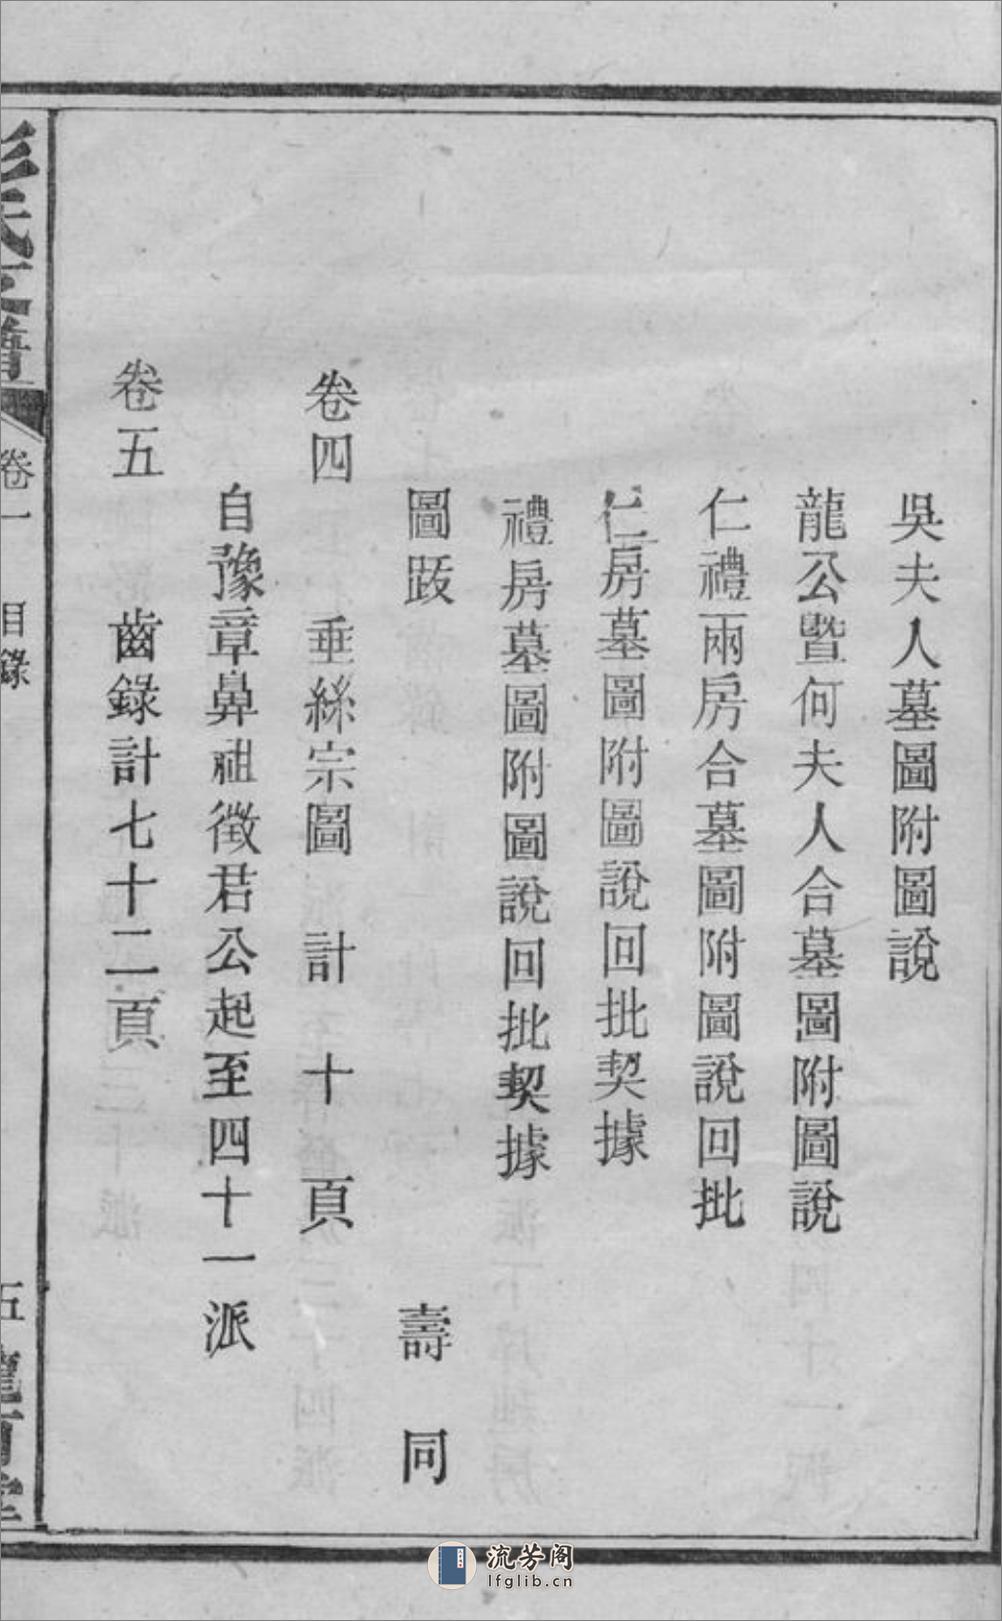 吳夫人墓圖附圖說
龍公暨何夫人合墓圖附圖說
仁禮兩房合墓圖附圖說回批
仁房墓圖附圖說回批契據
禮房墓圖附圖說回批契據
圖跋 壽同
卷四 垂絲宗圖 計十頁
自豫章鼻祖徵君公起至四十一派
卷五 齒錄計七十二頁
卷一 目錄 五
流芳阁
lfglib.cn